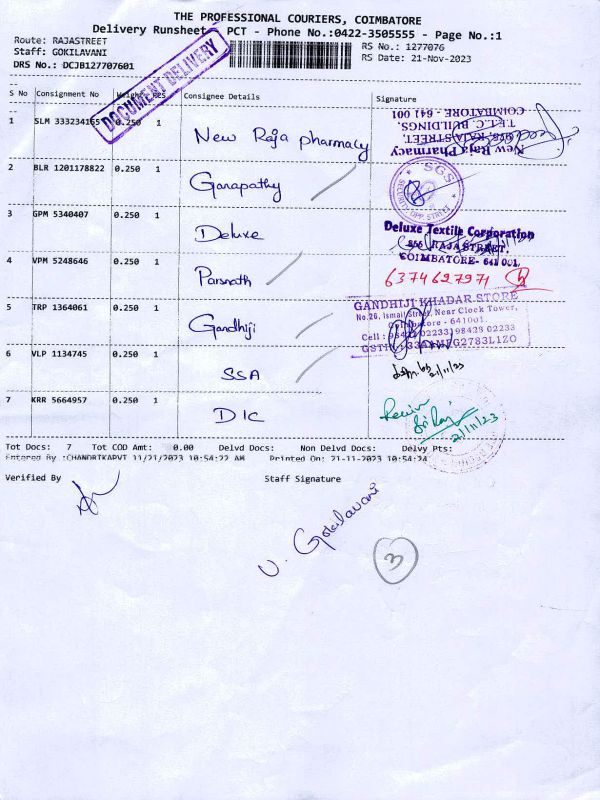 THE PROFESSIONAL COURIERS, COIMBATORE
Delivery Runsheet PCT - Phone No.:0422-3505555 - Page No.:1
Route: RAJASTREET
Staff: GOKILAVANI
DRS No.: DCJB127707601
RS No.: 1277076
RS Date: 21-Nov-2023
DOCUMENT DELIVERY
S No Consignment No Weight Pcs Consignee Details Signature
1 0.250 1 New Raja pharmacy
New Raja Pharmacy
RAJASTREET.
T.E.L.C. BUILDINGS,
COIMBATORE - 641 001
2 BLR 1201178822 0.250 1 Ganapathy
SGS
3 GPM 5340407 0.250 1 Deluxe
Deluxe Textile Corporation
RAJA STREET,
COIMBATORE- 641 001.
4 VPM 5248646 0.250 1 Parsnath
6374627971
5 TRP 1364061 0.250 1 Gandhiji
GANDHIJI KHADAR STORE
No.26, Ismail Street, Near Clock Tower,
Coimbatore - 641001.
Cell : 02233, 98428 02233
6 VLP 1134745 0.250 1 SSA
21/11/23
7 KRR 5664957 0.250 1 DIC
21/11/23
Tot Docs: 7 Tot COD Amt: 0.00 Delvd Docs: Non Delvd Docs: Delvy Pts:
Entered By :CHANDRTKAPVT 11/21/2023 10:54:22 AM Printed On: 21-11-2023 10:54:24
Verified By Staff Signature
V. Gokilavani
3